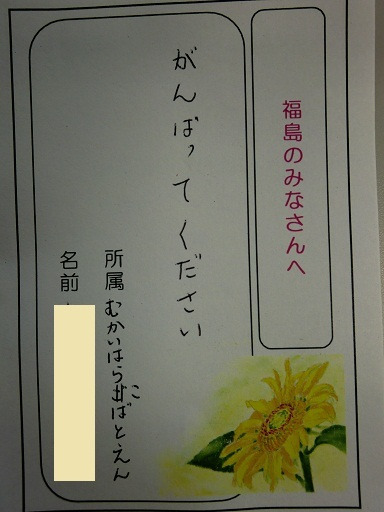 福島のみなさんへ
がんばってください
所属 むかいはらこばとえん
名前